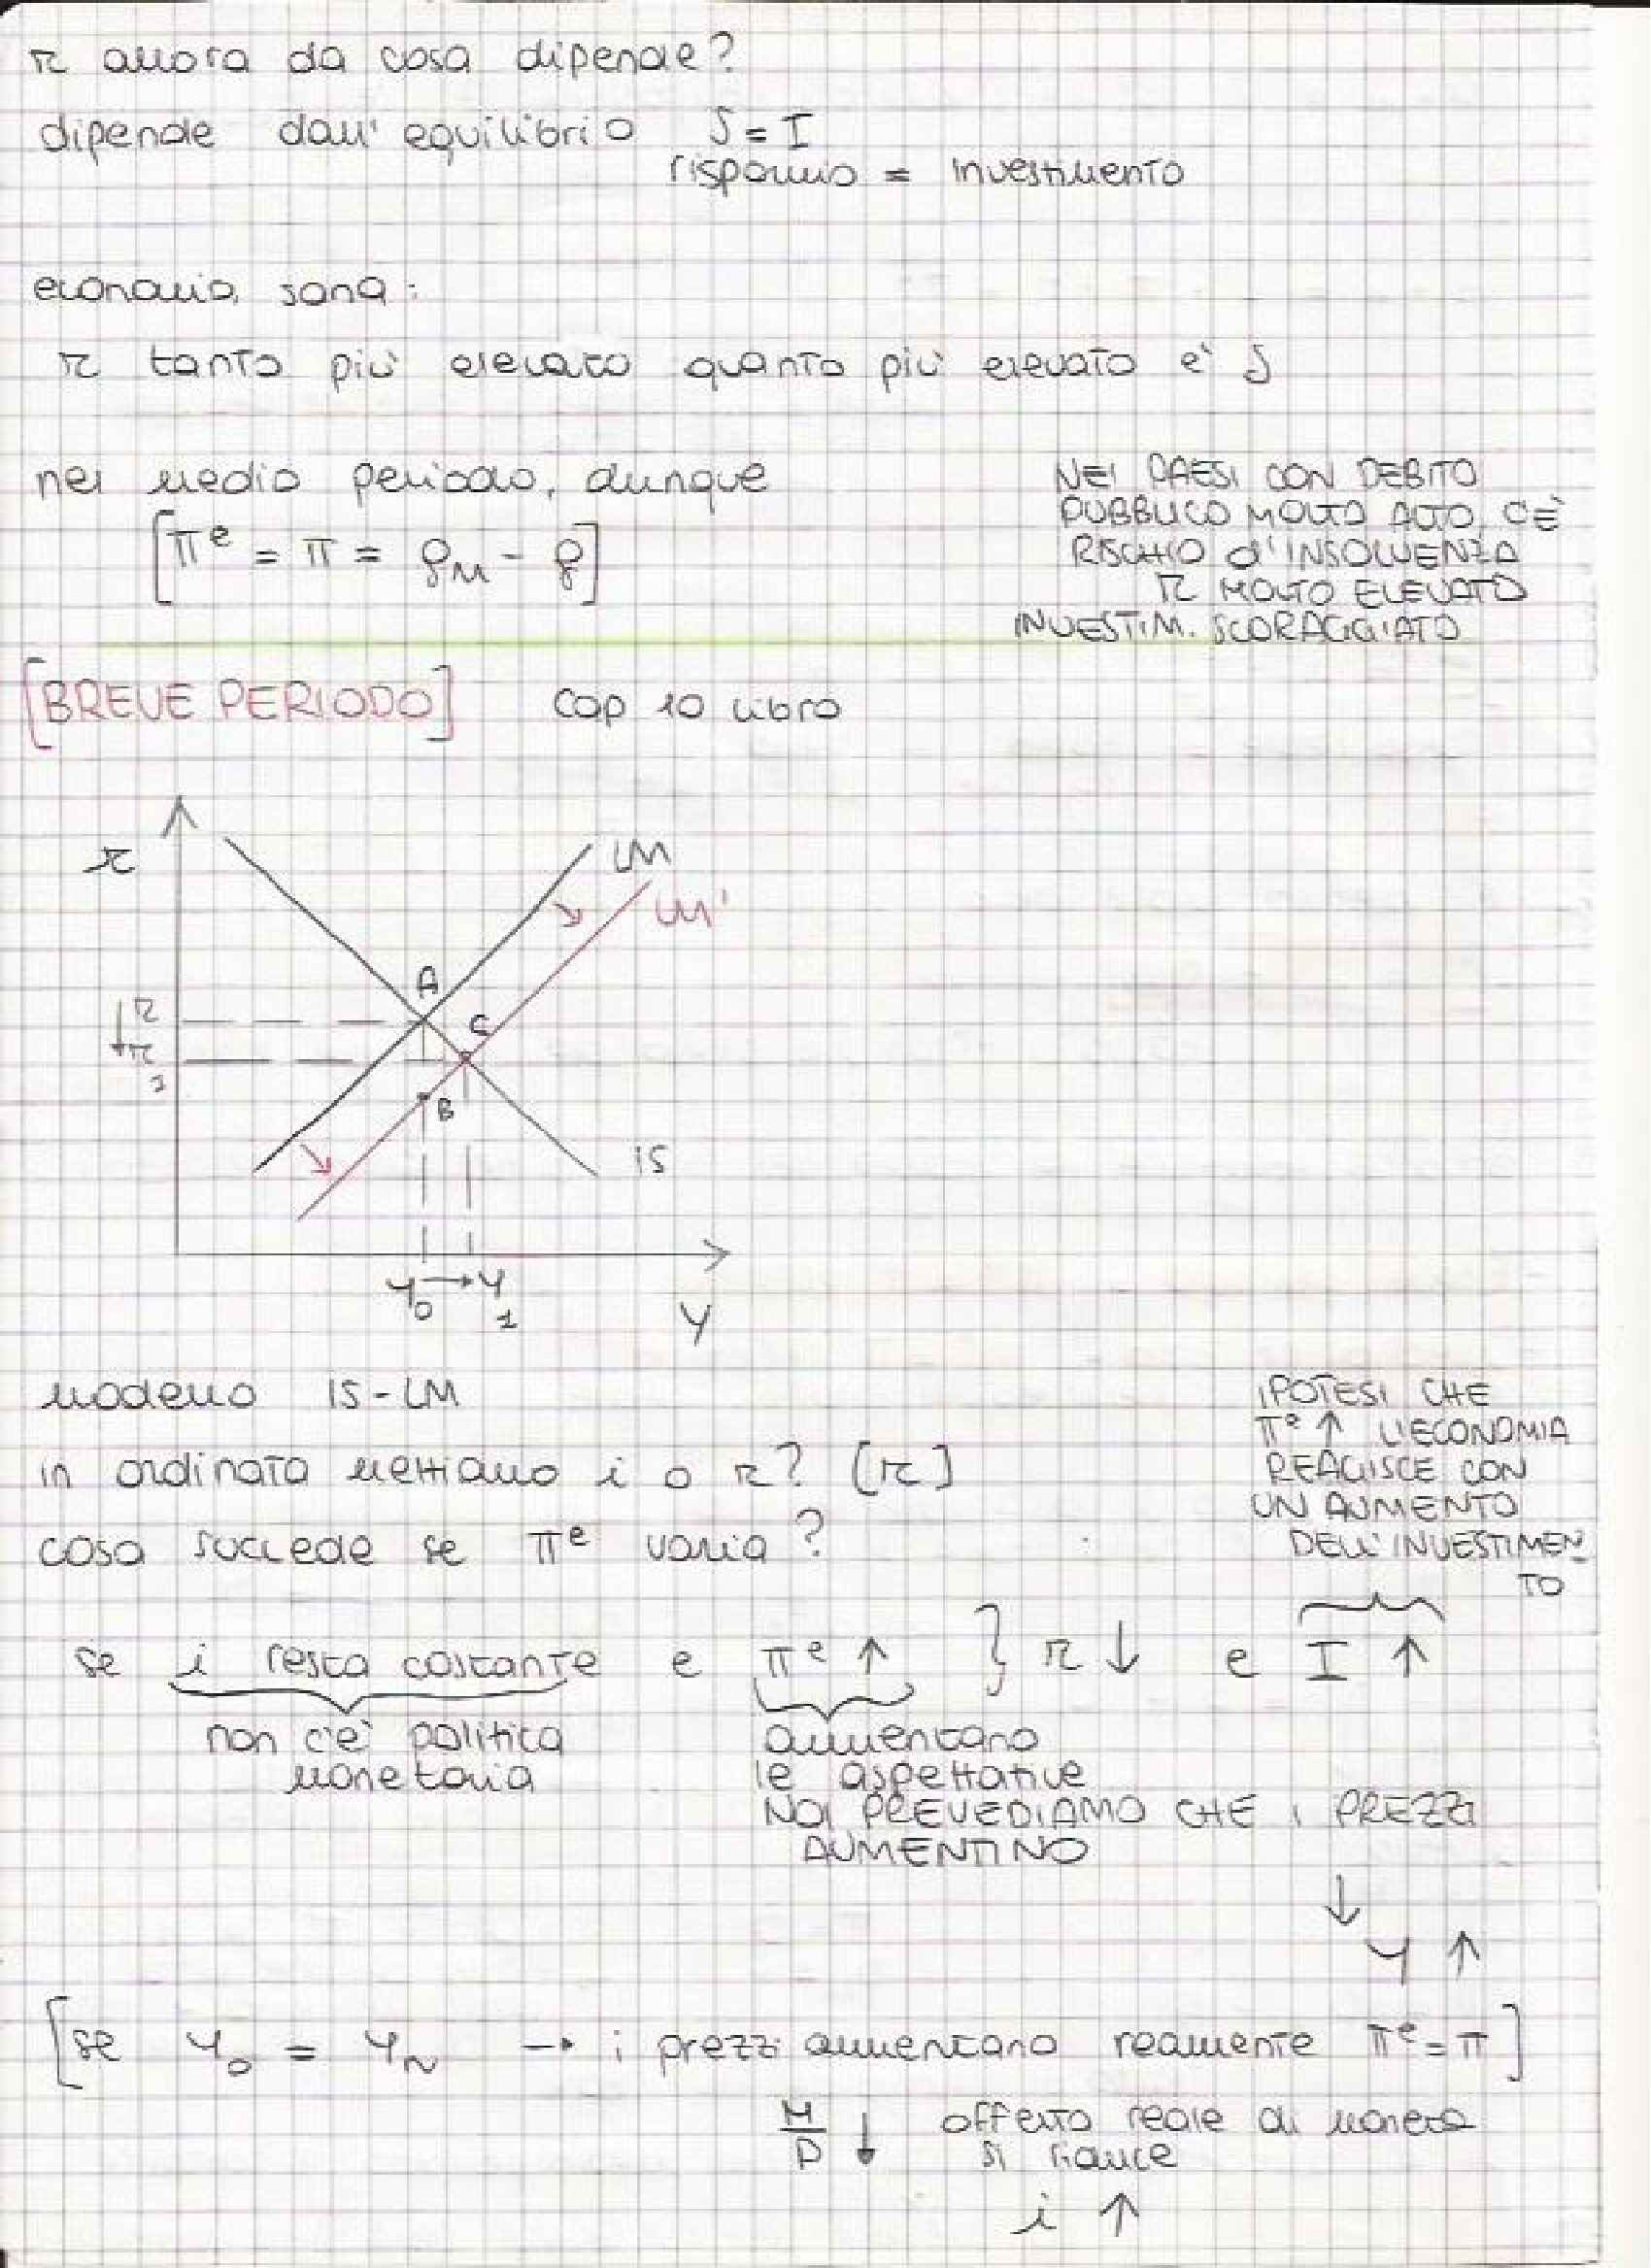 r allora da cosa dipende?
dipende dall'equilibrio S = I
risparmio = investimento
economia sana:
r tanto più elevato quanto più elevato è S
nel medio periodo, dunque
[πᵉ = π = gM - g]
NEI PAESI CON DEBITO
PUBBLICO MOLTO ALTO, C'È
RISCHIO d'INSOLVENZA
r MOLTO ELEVATO
INVESTIM. SCORAGGIATO
[BREVE PERIODO] cap 10 libro
r
LM
LM'
A
r
C
r1
B
IS
Y0 → Y1
Y
modello IS-LM
in ordinata mettiamo i o r? [r]
cosa succede se πᵉ varia?
IPOTESI CHE
πᵉ ↑ L'ECONOMIA
REAGISCE CON
UN AUMENTO
DELL'INVESTIMEN-
TO
se i resta costante e πᵉ ↑ } r ↓ e I ↑
non c'è politica
monetaria
aumentano
le aspettative
NOI PREVEDIAMO CHE I PREZZI
AUMENTINO
↓
Y ↑
[se Y0 = YN → i prezzi aumentano realmente πᵉ = π]
M/P ↓ offerta reale di moneta
si riduce
i ↑